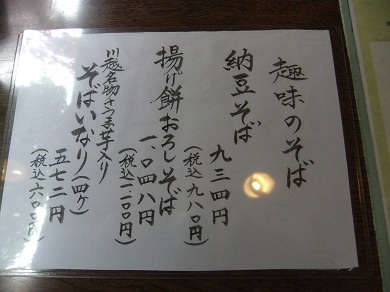 趣味のそば
納豆そば
九三四円
(税込九八〇円)
揚げ餅おろしそば
一、〇四八円
(税込一、一〇〇円)
川越名物さつま芋入り
そばいなり(四ケ)
五七二円
(税込六〇〇円)